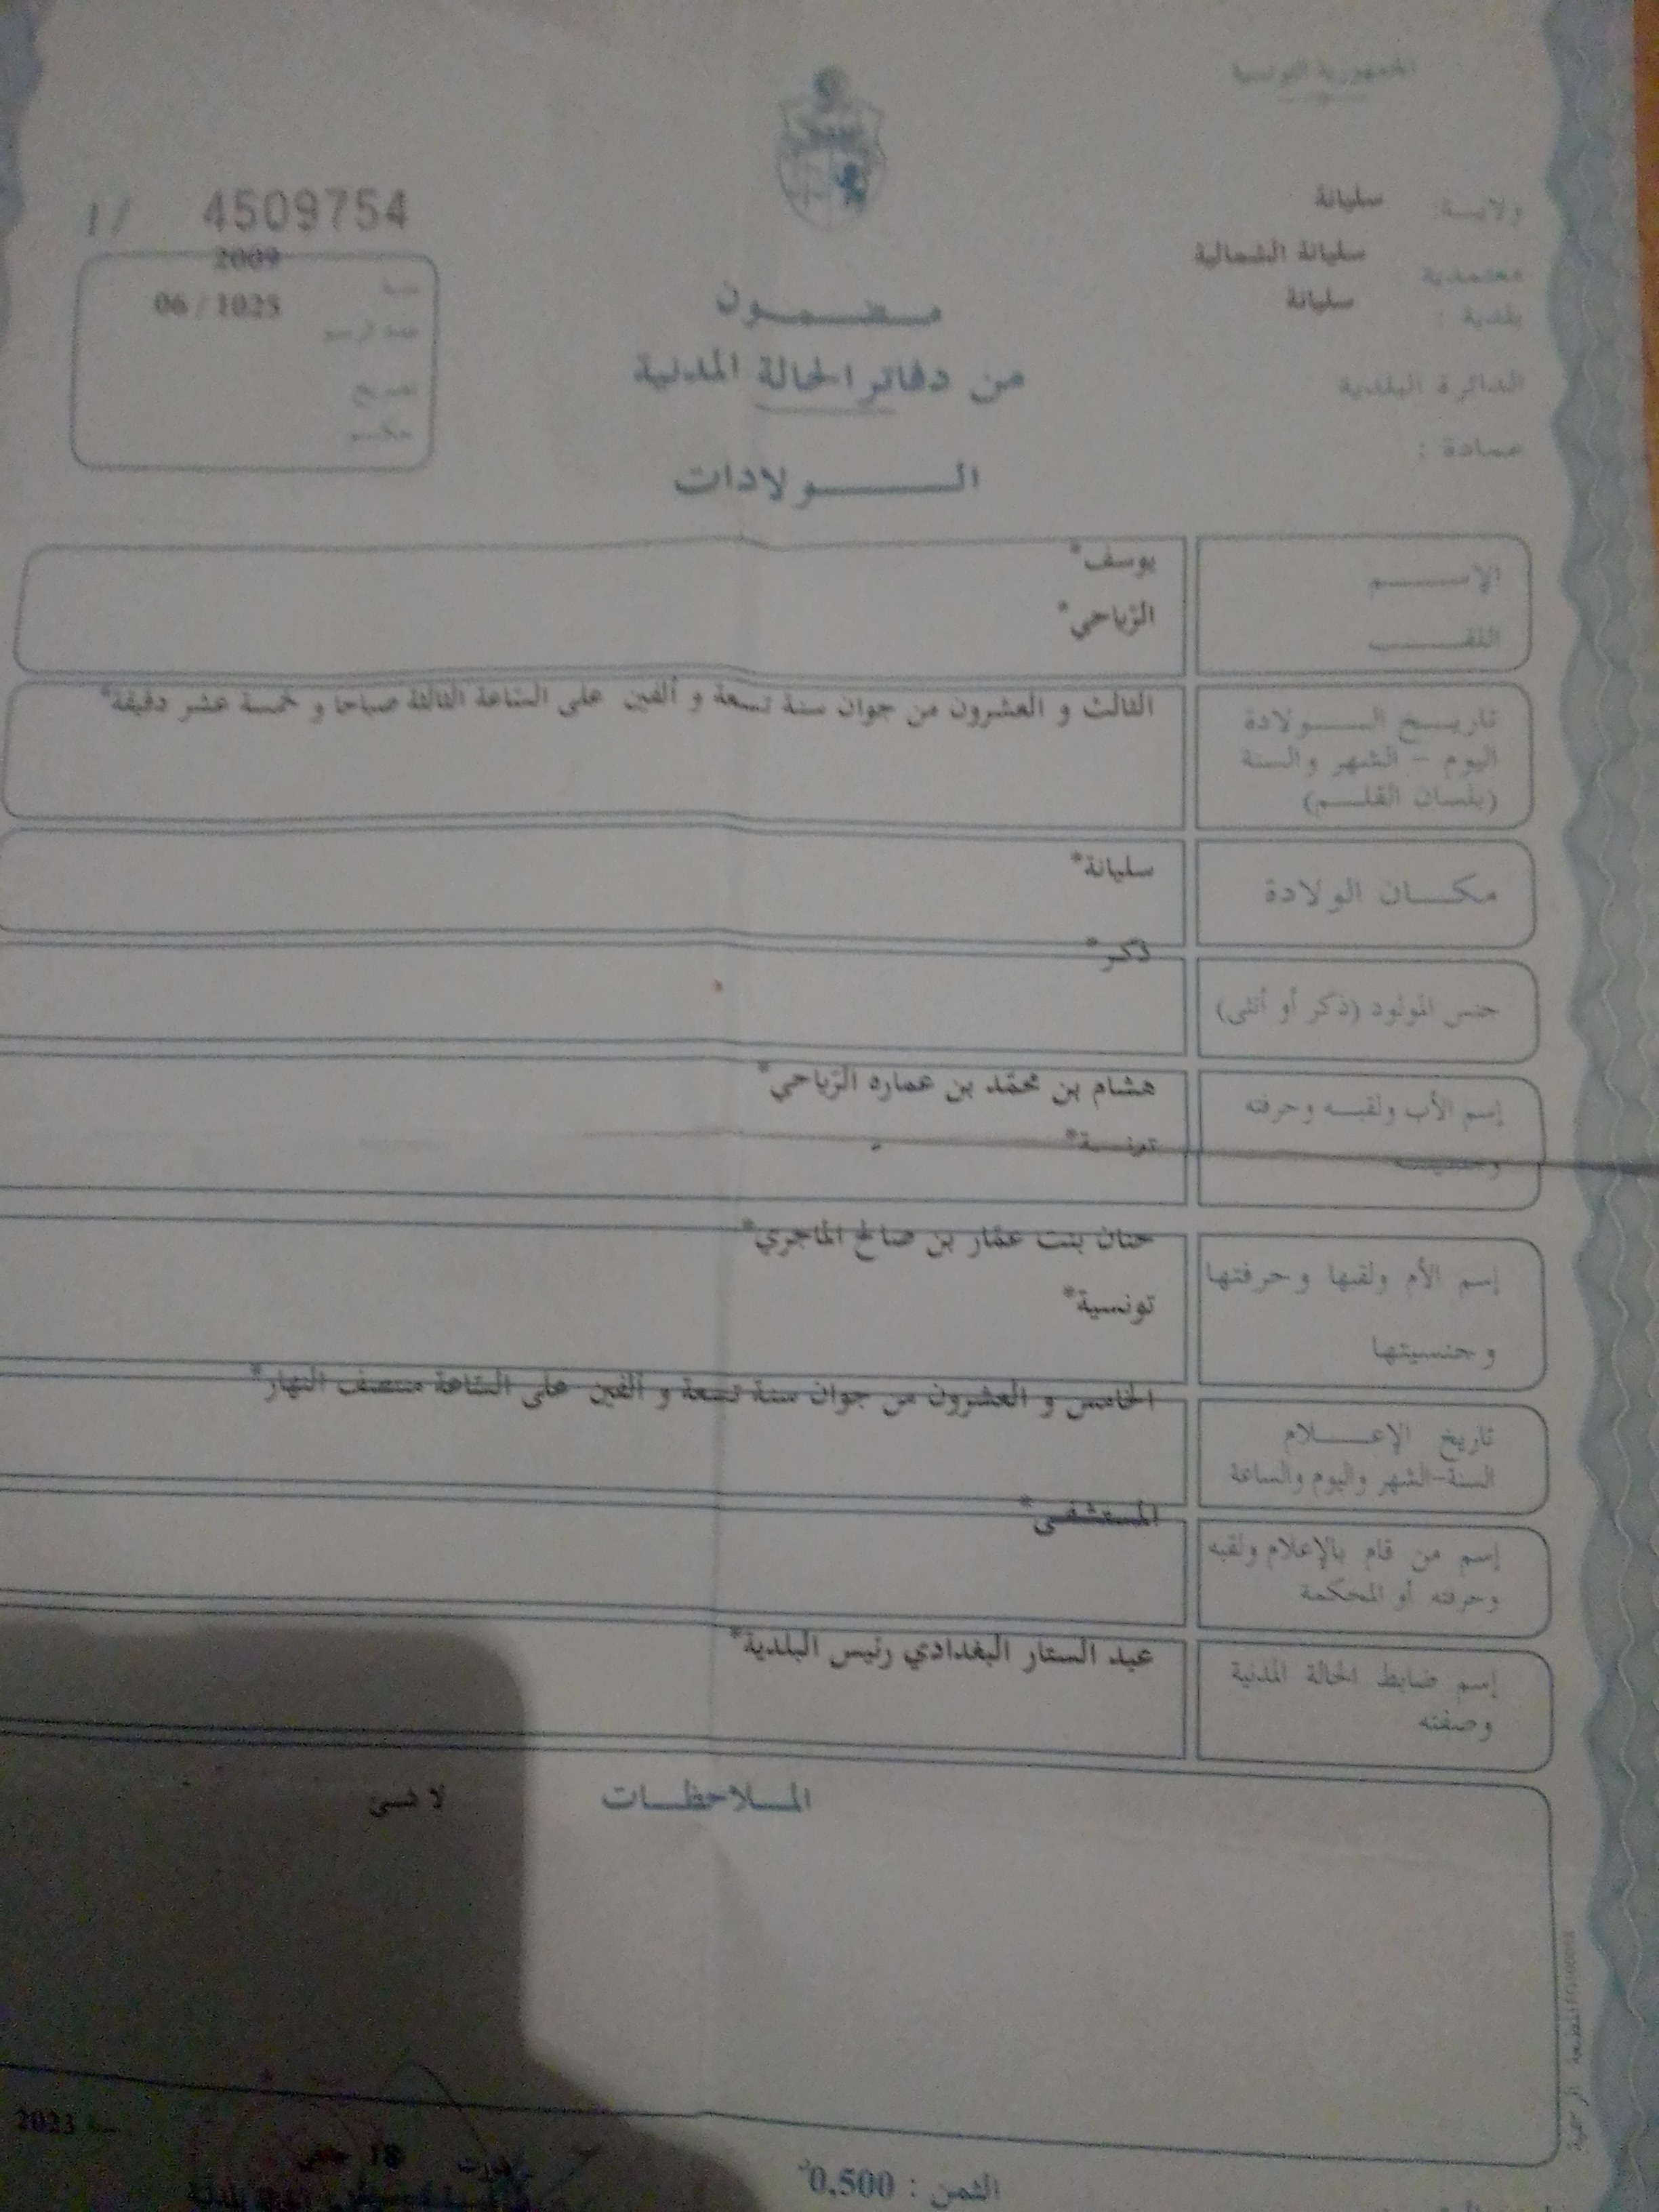 الجمهورية التونسية
ولايـة: سليانة
معتمدية: سليانة الشمالية
بلدية: سليانة
الدائرة البلدية
عمادة:
4509754 / 1
2009
سنة
06 / 1025
عدد الرسم
تصريح
حكم
مضمون
من دفاتر الحالة المدنية
الولادات
الإسم يوسف*
اللقب الرّياحي*
تاريخ الولادة
اليوم - الشهر والسنة
(بلسان القلم)
الثالث و العشرون من جوان سنة تسعة و ألفين على السّاعة الثالثة صباحا و خمسة عشر دقيقة*
مكان الولادة سليانة*
جنس المولود (ذكر أو أنثى) ذكر*
إسم الأب ولقبه وحرفته هشام بن محمّد بن عماره الرّياحي*
وجنسيته
إسم الأم ولقبها وحرفتها حنان بنت عمّار بن صالح الماجري*
وجنسيتها تونسية*
تاريخ الإعلام
السنة-الشهر واليوم والساعة
الخامس و العشرون من جوان سنة تسعة و ألفين على السّاعة منتصف النهار*
إسم من قام بالإعلام ولقبه
وحرفته أو المحكمة
المستشفى*
إسم ضابط الحالة المدنية
وصفته
عبد الستار البغدادي رئيس البلدية*
الملاحظات لا شئ
18
2023
الثمن : 0,500د